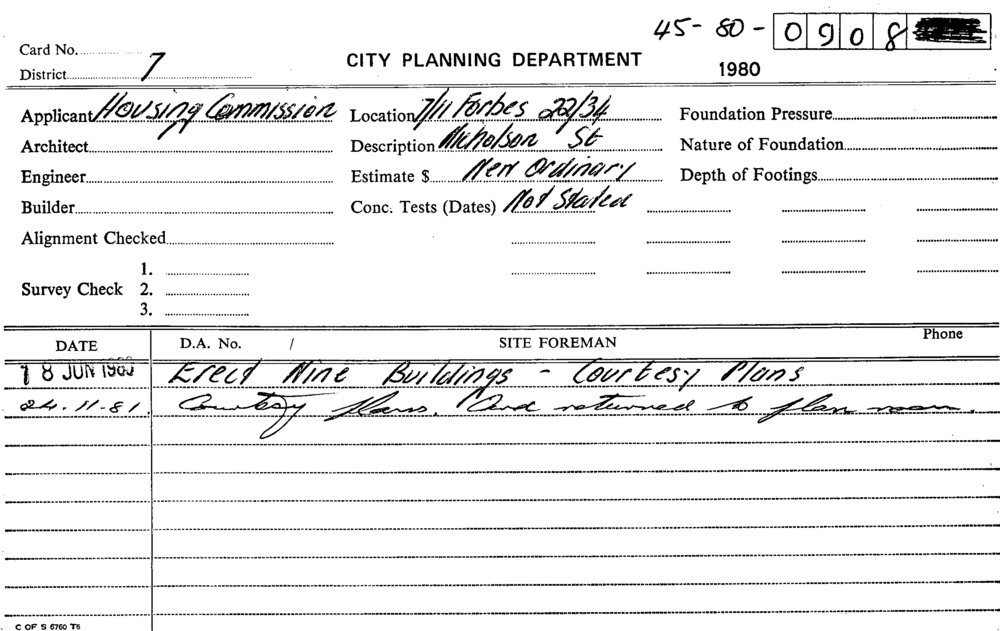 45-80-0908
Card No.
District 7
CITY PLANNING DEPARTMENT
1980
Applicant Housing Commission Location 7/11 Forbes 22/34 Foundation Pressure
Architect Description Nicholson St Nature of Foundation
Engineer Estimate $ New Ordinary Depth of Footings
Builder Conc. Tests (Dates) Not Stated
Alignment Checked
1.
Survey Check 2.
3.
DATE D.A. No. / SITE FOREMAN Phone
18 JUN 1980 Erect Nine Buildings - Courtesy Plans
24.11.81. Courtesy plans. And returned to plan room.
C OF S 6760 T6